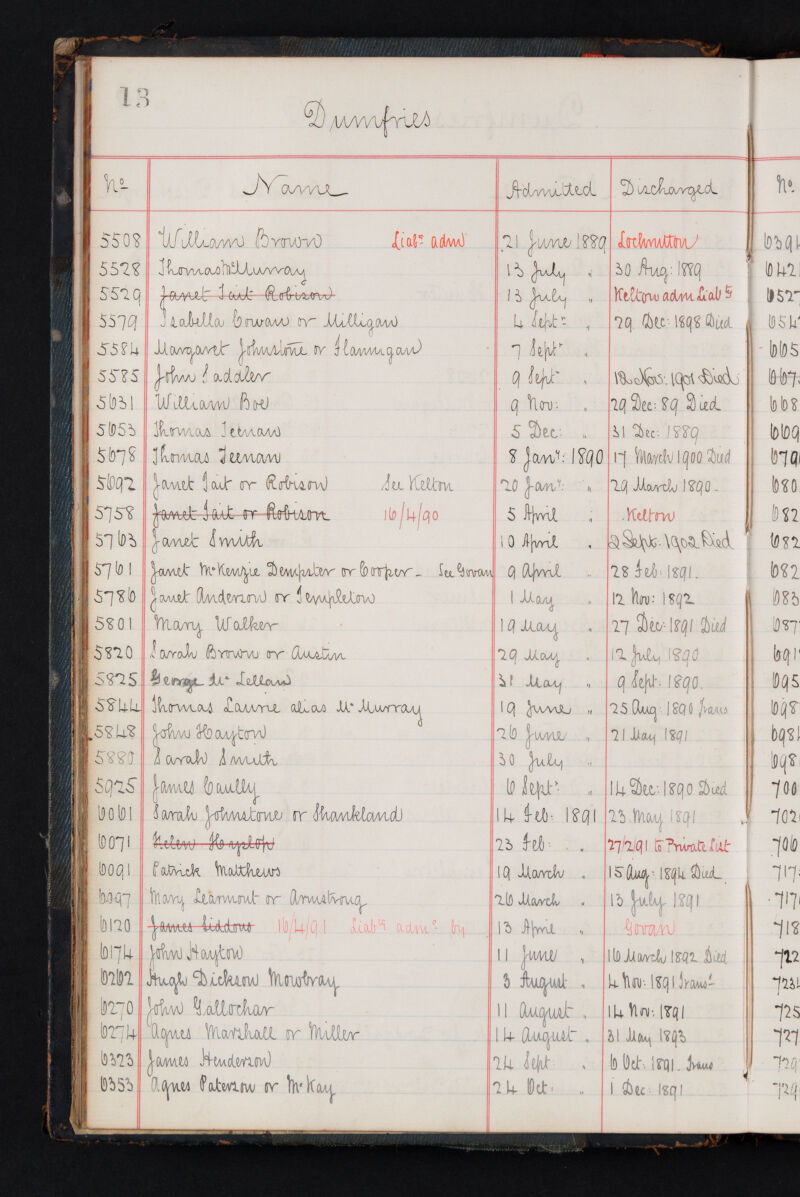 13
Dumfries
No. Name Admitted Discharged No.
5508 William Brown Liaby admd 21 June 1889 Lochrutton
5528 Thomas McMurray 13 July " 30 Aug: 1889
5529 Janet Tait Robison 13 July " Kelton adm Liaby
5579 Isabella Cowan or Milligan 4 Septr " 29 Dec: 1898 Died
5584 Margaret Johnstone or Flannigan 7 Septr "
5585 John Saddler 9 Septr " 18 Nov: 1901 Died
5631 William Boe 9 Nov: " 29 Dec: 89 Died
5653 Thomas Teenan 5 Dec: " 31 Dec: 1889
5678 Thomas Teenan 8 Jany: 1890 17 March 1900 Died
5692 Janet Tait or Robison See Kelton 20 Jany: " 29 March 1890
5758 Janet Tait or Robison 16/4/90 5 April " Kelton
5763 Janet Smith 10 April " 2 Sept. 1902 Died
5761 Janet McKenzie Dempster or Cooper - See Govan 9 April " 28 Feb: 1891.
5786 Janet Anderson or Templeton 1 May " 12 Nov: 1892
5801 Mary Walker 19 May " 27 Dec: 1891 Died
5820 Sarah Brown or Austin 29 May " 12 July 1890
5825 George McLellan 31 May " 9 Sept: 1890.
5844 Thomas Laurie alias McMurray 19 June " 25 Aug: 1890 Trans
5848 John Hayton 26 June " 21 May 1891
5880 Sarah Smith 30 July "
5925 James Caully 6 Septr " 14 Dec: 1890 Died
6061 Sarah Johnstone or Shankland 14 Feb: 1891 23 May 1891
6071 Helen 23 Feb: " 27/2/91 to Private List
6091 Patrick Matthews 19 March " 15 Aug: 1894 Died
6097 Mary Learmont or Armstrong 26 March " 13 July 1891
6120 James Siddons 16/4/91 Liaby admd by 13 April " Govan
6174 John Hayton 11 June " 16 March 1892 Died
6202 Hugh Dickson Mowbray 3 August " 4 Nov: 1891 Transd
6270 John Gallochar 11 August " 14 Nov: 1891
6274 Agnes Marshall or Miller 14 August " 31 May 1893
6323 James Henderson 24 Sept: " 6 Oct: 1891. Trans
6353 Agnes Paterson or McKay 24 Oct: " 1 Dec: 1891